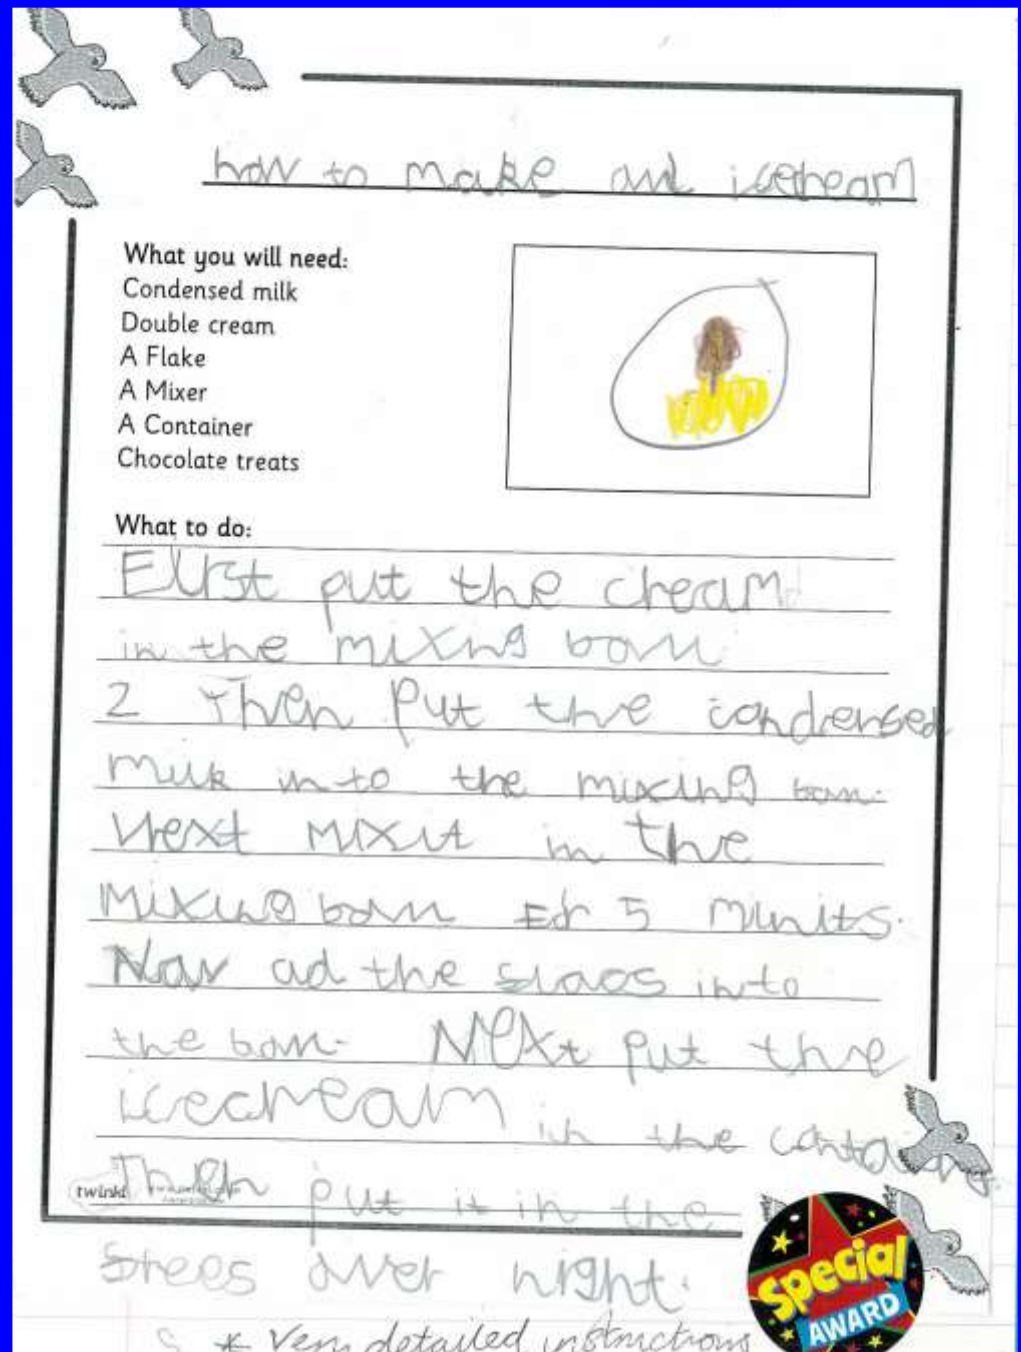 how to make an icecream
What you will need:
Condensed milk
Double cream
A Flake
A Mixer
A Container
Chocolate treats
What to do:
First put the cream
in the mixing bowl
2 Then put the condensed
milk into the mixing bowl.
Next mix it in the
Mixing bowl for 5 minits.
Now ad the into
the bowl. Next put the
icecream in the
twinkl Then put it in the
over night.
* Very detailed instructions
Special
AWARD